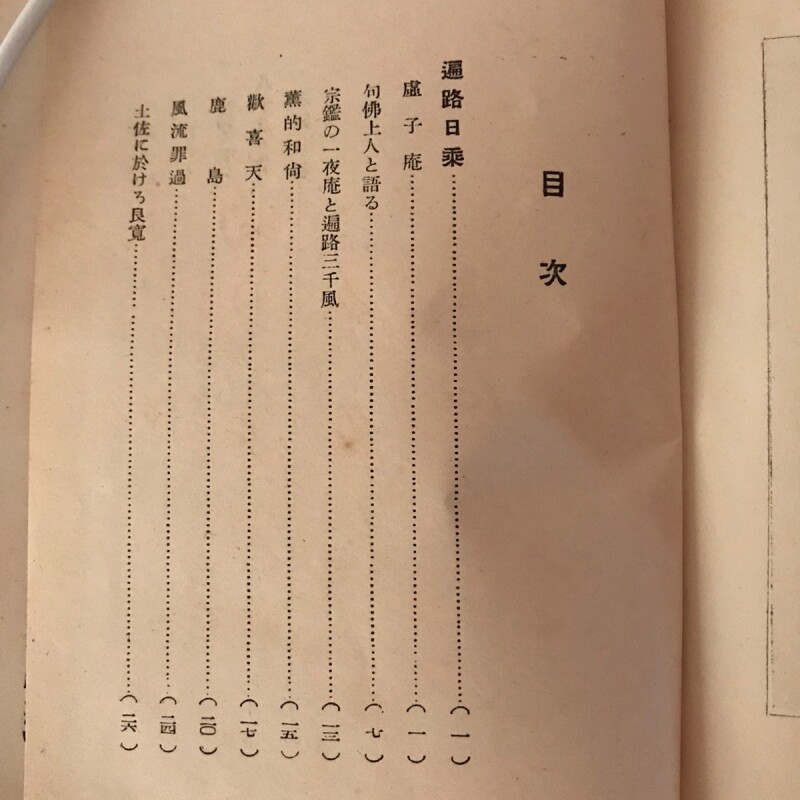 目次
遍路日乘……(一)
虛子庵……(一)
句佛上人と語る……(七)
宗鑑の一夜庵と遍路三千風……(一三)
薰的和尙……(一五)
歡喜天……(一七)
鹿島……(二〇)
風流罪過……(二四)
土佐に於ける良寬……(二六)